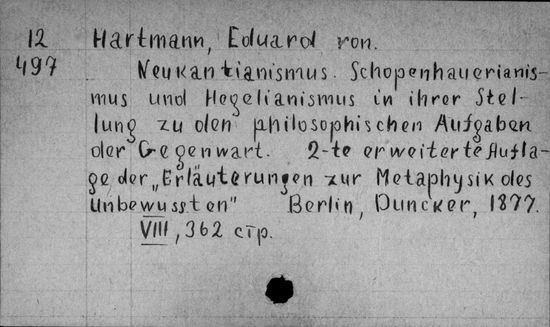 12 Hartmann, Eduard von.
497 Neukantianismus. Schopenhauerianis-
mus und Hegelianismus in ihrer Stel-
lung zu den philosophischen Aufgaben
der Gegenwart. 2-te erweiterte Aufla-
ge der „Erläuterungen zur Metaphysik des
Unbewussten" Berlin, Duncker, 1877.
VIII, 362 стр.